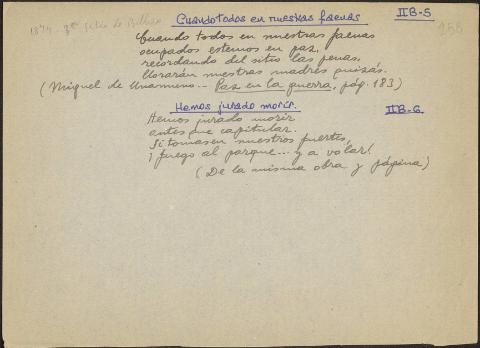 1874. 2º Sitio de Bilbao
Cuando todos en nuestras faenas
IIB-5
155
Cuando todos en nuestras faenas
ocupados estemos en paz,
recordando del sitio las penas,
llorarán nuestras madres quizás.
(Miguel de Unamuno.- Paz en la guerra, pág. 183)
Hemos jurado morir.
IIB-6
Hemos jurado morir
antes que capitular.
Si tomasen nuestros fuertes,
¡ fuego al parque... y a volar!
(De la misma obra y página)